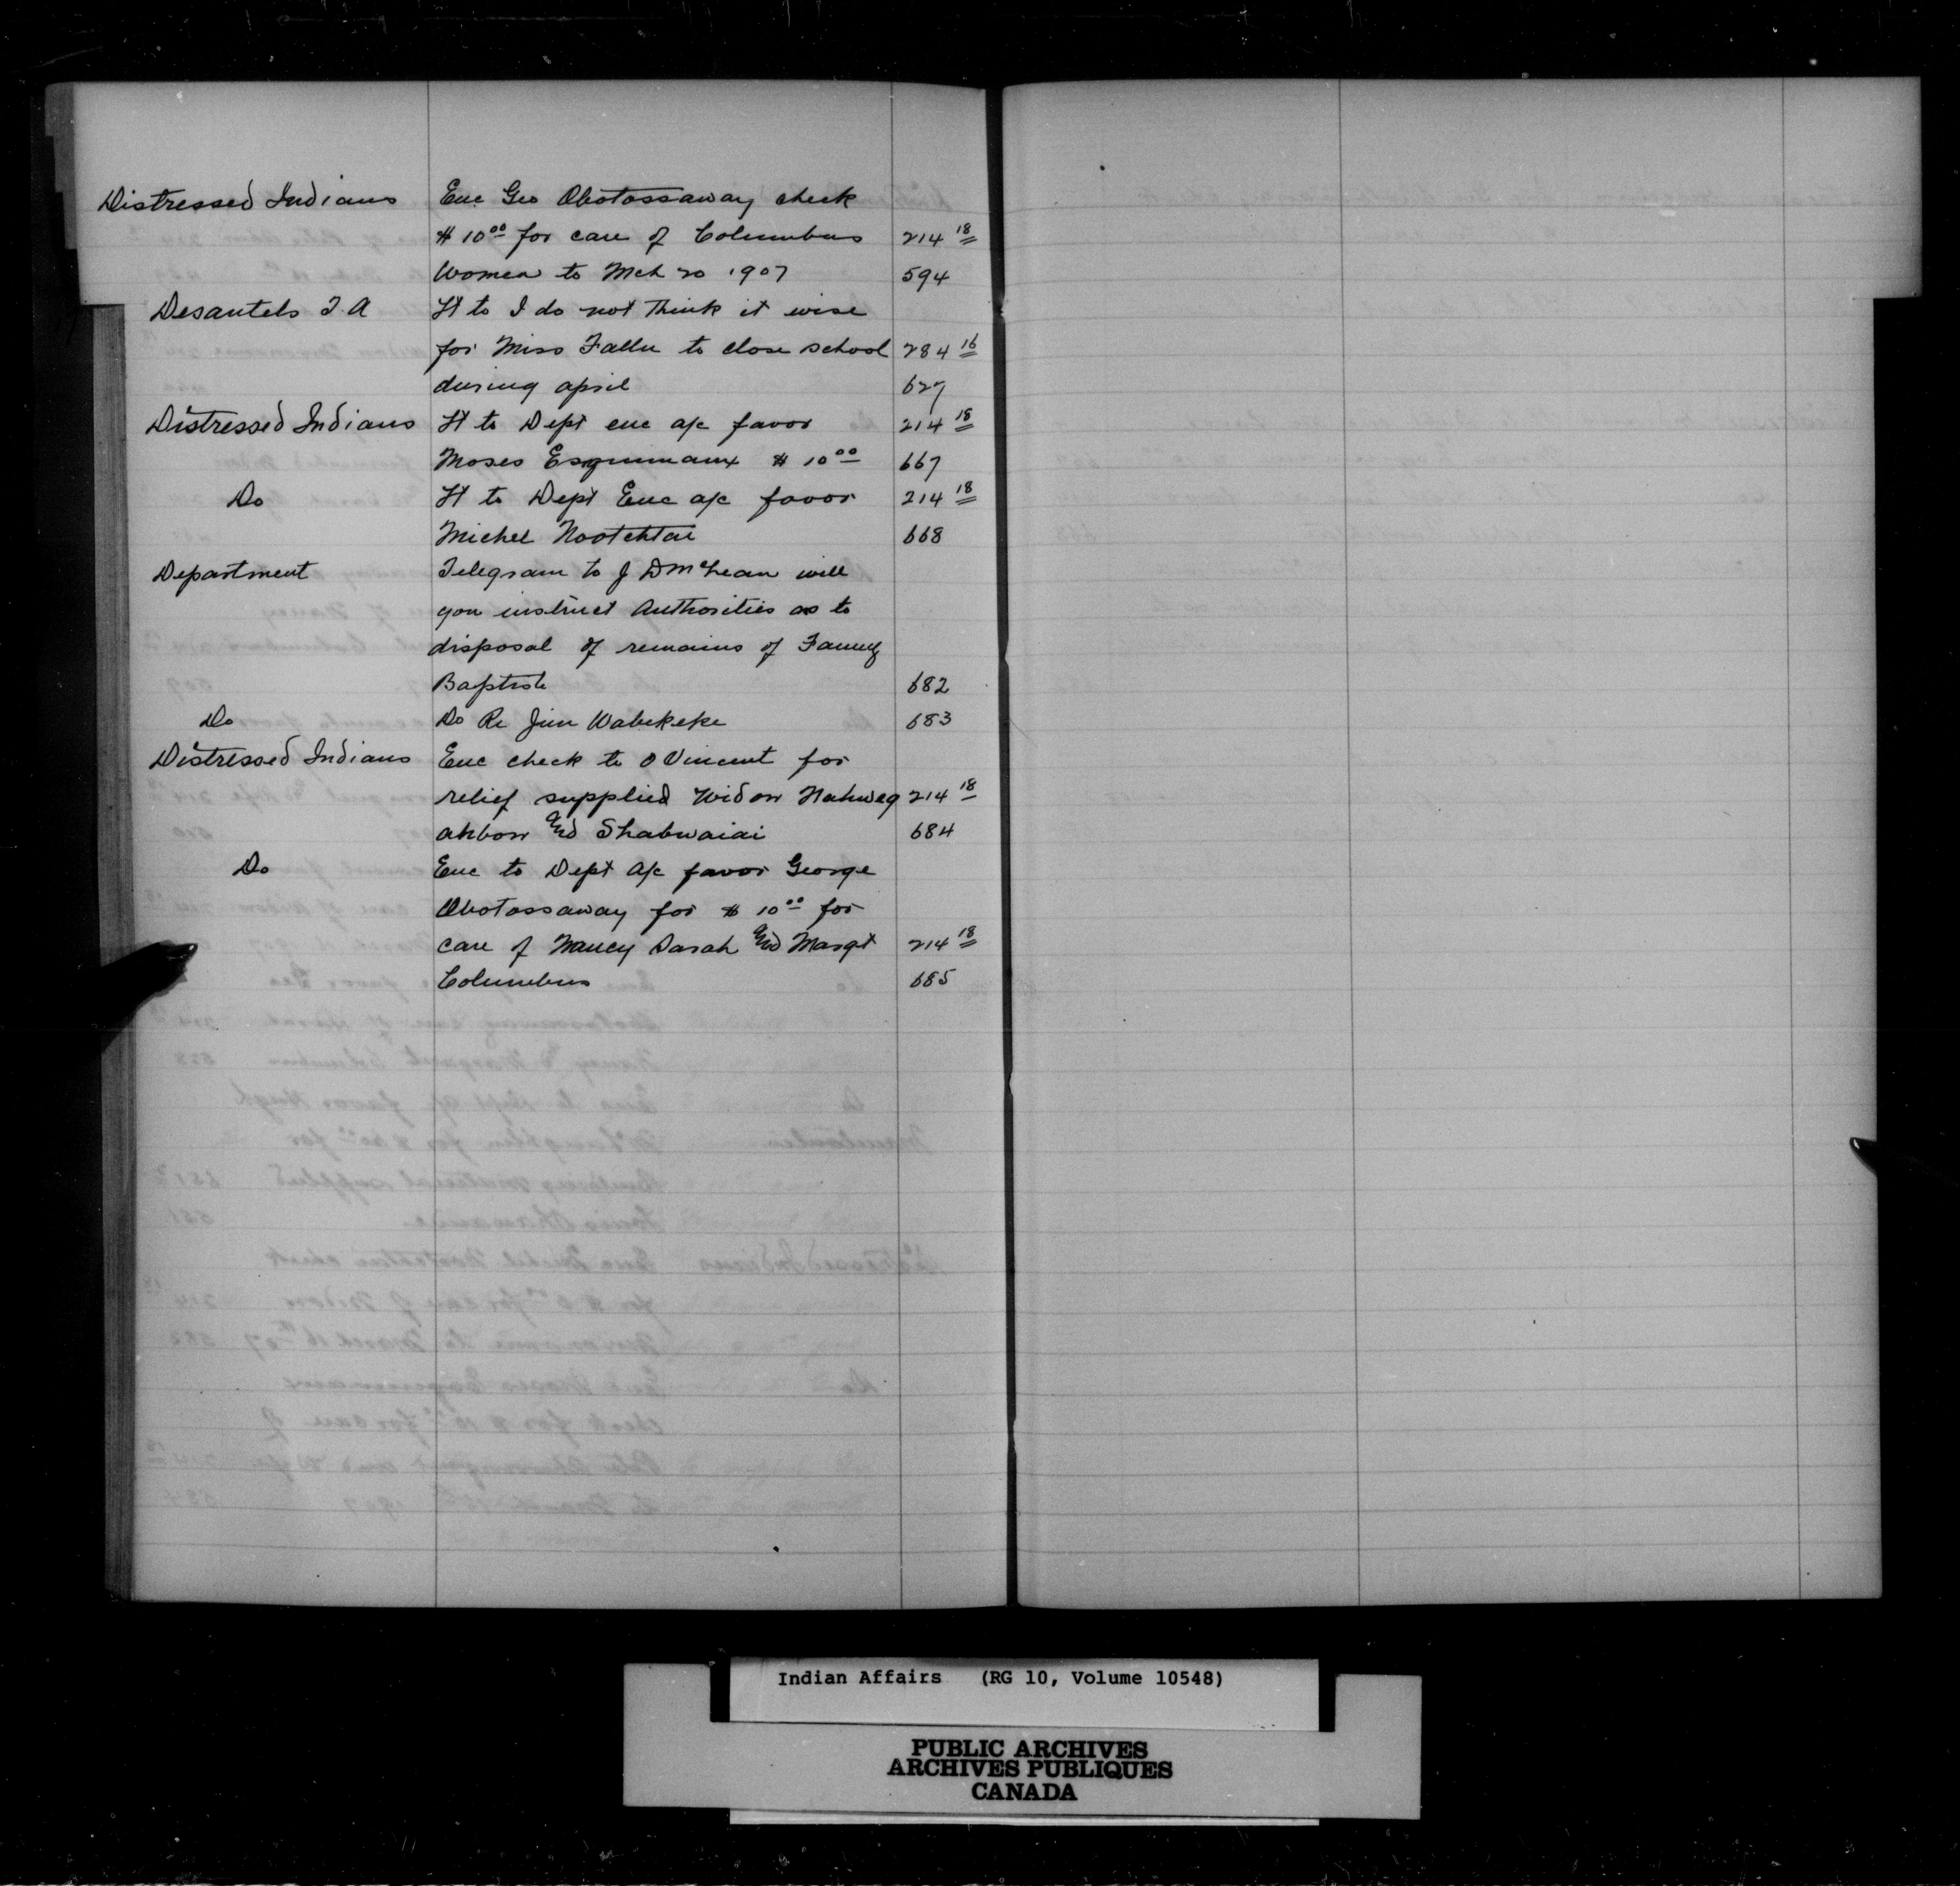 Distressed Indians Enc Geo Obotossaway check
$ 10 00 for care of Columbus 214 18
Women to Mch 20 1907 594
Desautels T. A Lt to I do not think it wise
for Miss Fallu to close school 284 16
during april 627
Distressed Indians Lt to Dept enc a/c favor 214 18
Moses Esquimaux $ 10 00 667
Do Lt to Dept Enc a/c favor 214 18
Michel Nootchtai 668
Department Telegram to J D McLean will
you instruct Authorities as to
disposal of remains of Fanny
Baptiste 682
Do Do Re Jim Wabekeke 683
Distressed Indians Enc check to O Vincent for
relief supplied Widow Nahweg 214 18
ahbow And Shabwaiai 684
Do Enc to Dept A/c favor George
Obotossaway for $ 10 00 for
care of Nancy Sarah And Margt 214 18
Columbus 685
Indian Affairs (RG 10, Volume 10548)
PUBLIC ARCHIVES
ARCHIVES PUBLIQUES
CANADA